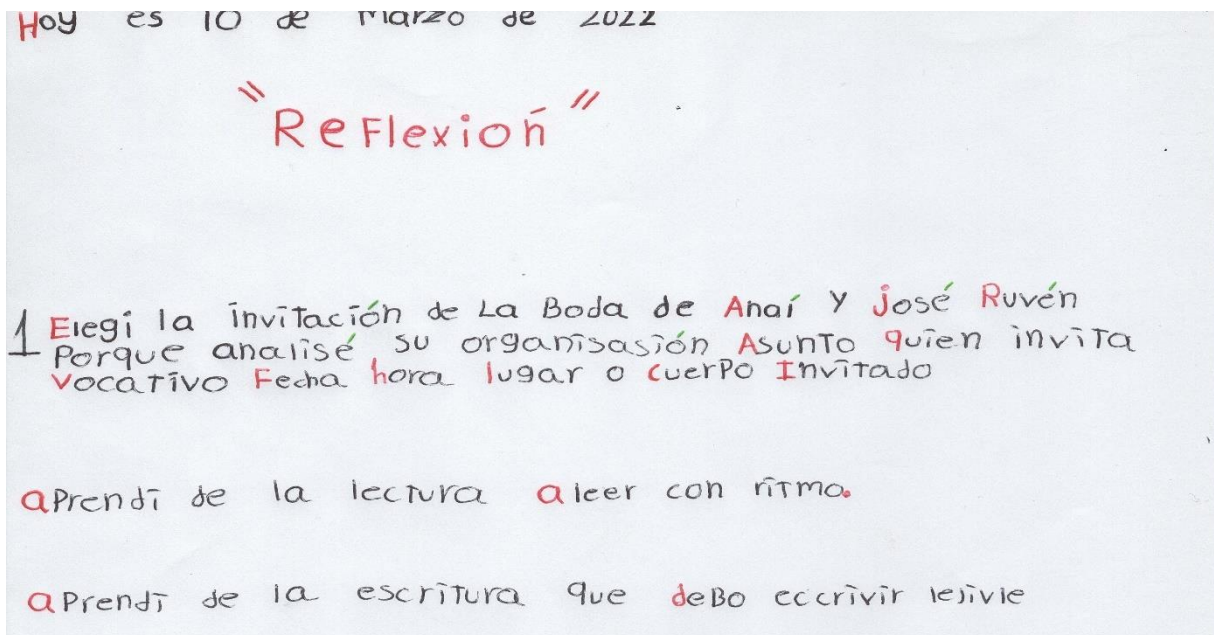 Hoy es 10 de Marzo de 2022
"Reflexión"
1 Elegí la invitación de La Boda de Anaí y José Ruvén
Porque analisé su organisasión Asunto quien invita
Vocativo Fecha hora lugar o cuerpo Invitado
aprendi de la lectura a leer con ritmo.
aprendi de la escritura que debo eccrivir lejivle